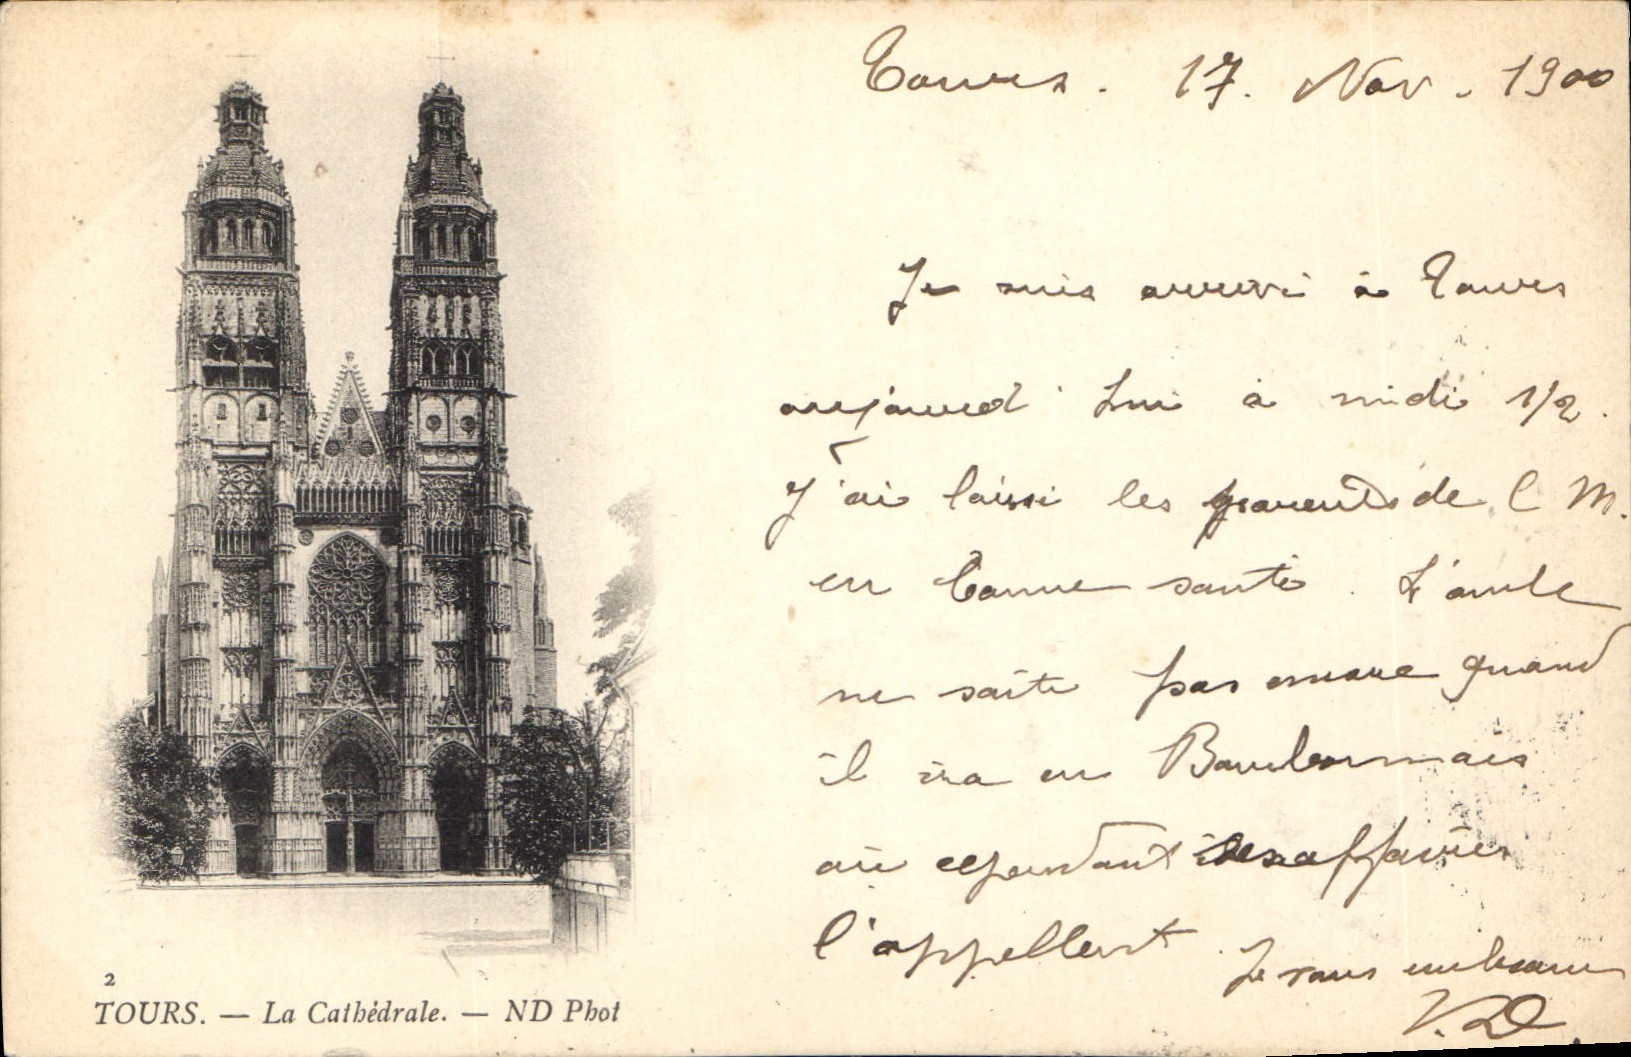 Tours. 17. Nov. 1900
Je suis arrivé à Tours
aujourd'hui à midi 1/2.
J'ai laissé les parents de C M.
en bonne santé. L'oncle
ne sait pas encore quand
il ira en Bourbonnais
où cependant des affaires
l'appellent. Je vous embrasse
V.D
2
TOURS. — La Cathédrale. — ND Phot